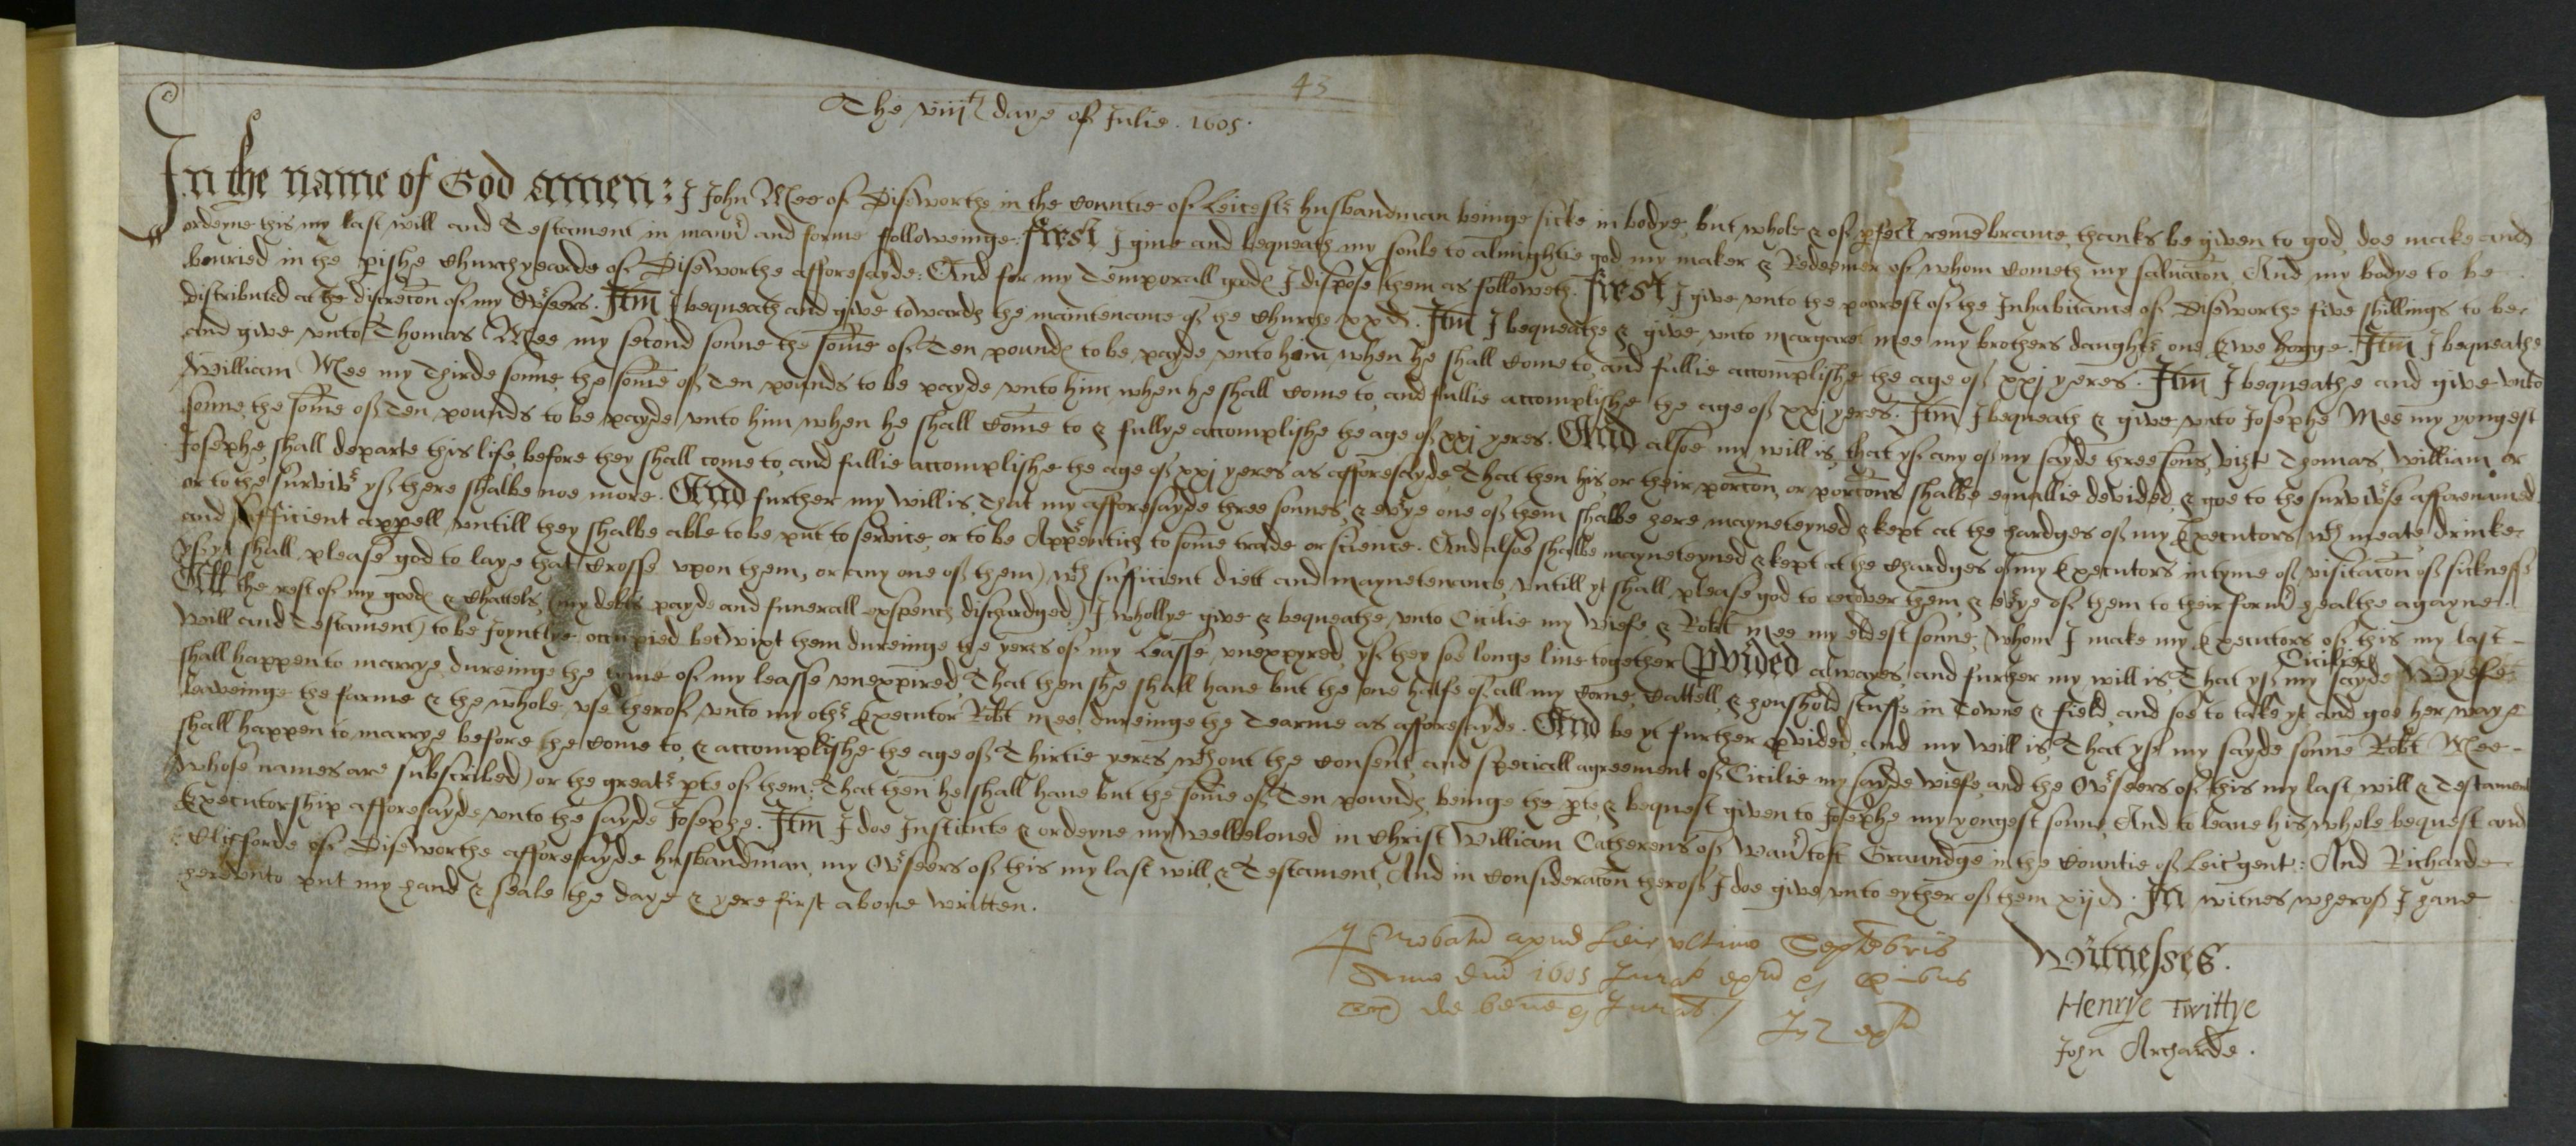 43
The viijth daye of Julie . 1605 .
In the name of God amen : I John Mee of Diseworthe in the countie of Leicestr husbandman beinge sicke in bodye, but whole & of pfect remebrance, thanks be given to god, doe make and
ordeyne this my last will and Testament in manr and forme followeinge : First I give and bequeath my soule to almightie god my maker & Redeemer of whom cometh my salvacon, And my bodye to be
bouried in the pishe Churchyearde of Diseworthe afforesayde : And for my Temporall goods I dispose them as followeth . First I give unto the poorest of the Inhabitance of Diseworthe five shillings to be
distributed at the discrecon of my Ovseers . Itm I bequeath and give towards the maintenance of the Churche xxd . Itm I bequeathe & give unto Margaret Mee my brothers daughtr one Ewe hogge . Itm I bequeathe
and give unto Thomas Mee my second sonne the some of Ten pounds to be payde unto him when he shall come to, and fullie accomplishe the age of xxj yeres . Itm I bequeathe and give unto
William Mee my Thirde sonne, the some of Ten pounds to be payde unto him when he shall come to, and fullie accomplishe the age of xxj yeres . Itm I bequeath & give unto Josephe Mee my yongest
sonne, the some of Ten pounds to be payde unto him when he shall come to & fullye accomplishe the age of xxj yeres . And alsoe my will is, that yf any of my sayde three sons, vizt Thomas, William, or
Josephe, shall departe this life, before they shall come to, and fullie accomplishe the age of xxj yeres as afforesayde, That then his, or their porcon, or porcons shalbe equallie devided, & goe to the survivrse afforenamed
or to the survivr yf there shalbe noe more . And further my will is, That my afforesayde three sonnes, & evye one of them shalbe here mayneteyned & kept at the chardges of my Executors wth meate, drinke
and sufficient appell, untill they shalbe able to be put to service, or to be Apprentich to some trade or science . And alsoe shalbe mayneteyned & kept at the chardges of my Executors in tyme of visitacon of sickness
(yf yt shall please god to laye that crosse upon them, or any one of them) wth sufficient diett and maynetenance, untill yt shall please god to recover them, & evye of them to their formr healthe agayne .
All the rest of my goods & Chattels, (my debts payde and funerall expences dischardged,) I whollye give & bequeathe unto Cicilie my Wiefe & Robt Mee my eldest sonne, (whom I make my Executors of this my last
will and Testament) to be Joyntlye occupied betwixt them dureinge the yeres of my Leasse unexpyred, yf they soe longe live together Pvided alwayes, and further my will is, That yf my sayde Cicilie Wyefe
shall happen to marrye, dureinge the tyme of my leasse unexpired, That then she shall have but the one halfe of all my Corne, Cattell, & houshold stuffe in Towne & field, and soe to take yt and goe her waye
leaveinge the farme & the whole use therof unto my othr Executor Robt Mee, dureinge the Tearme as afforesayde . And be yt further pvided, and my will is, That yf my sayde sonne Robt Mee
shall happen to marrye before he come to, & accomplishe the age of Thirtie yeres wthout the consent, and speciall agreement of Cicilie my sayde wiefe, and the Ovseers of this my last will & Testament
(whose names are subscribed) or the greatr pte of them : That then he shall have but the some of Ten pounds, beinge the pte & bequest given to Josephe my yongest sonne, And to leave his whole bequest and
Executorship afforesayde, unto the sayde Josephe . Itm I doe Institute & ordeyne my Welbeloved in Christ William Catherens of Wan toft Graundge in the Countie of Leic gent : And Richarde
Clifforde of Diseworthe afforesayde husbandman, my Ovseers of this my last will & Testament, And in consideracon therof I doe give unto eyther of them xijd . In witnes wherof I have
hereunto put my hand & seale the daye & yere first above written .
Probatu apud Leic ultimo Septebris
Anno dni 1605 Jurat
de bene Jurat
Witnesses .
Henrye Twittye
John Archarde .